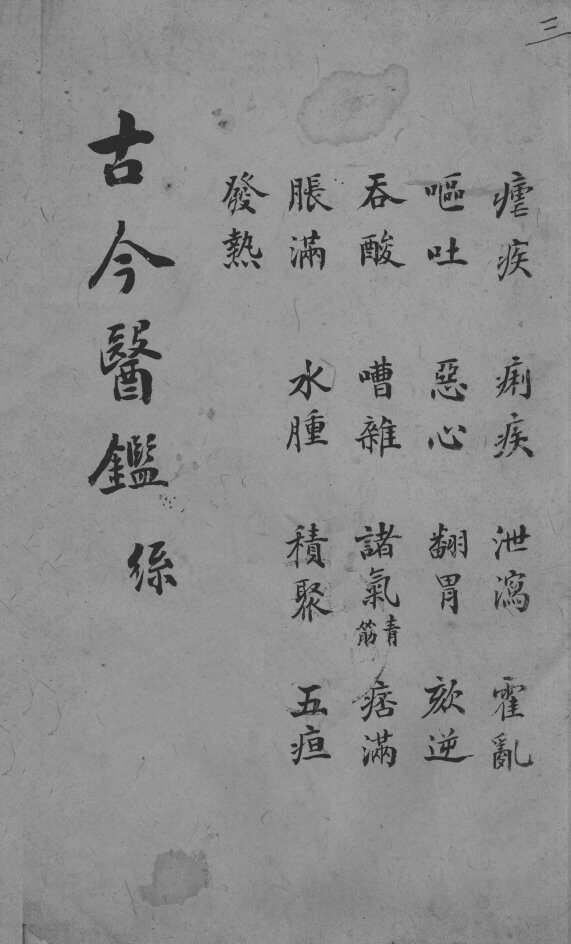 三
瘧疾 痢疾 泄瀉 霍亂
嘔吐 惡心 翻胃 欬逆
吞酸 嘈雜 諸氣 青筋 痞滿
脹滿 水腫 積聚 五疸
發熱
古今醫鑑